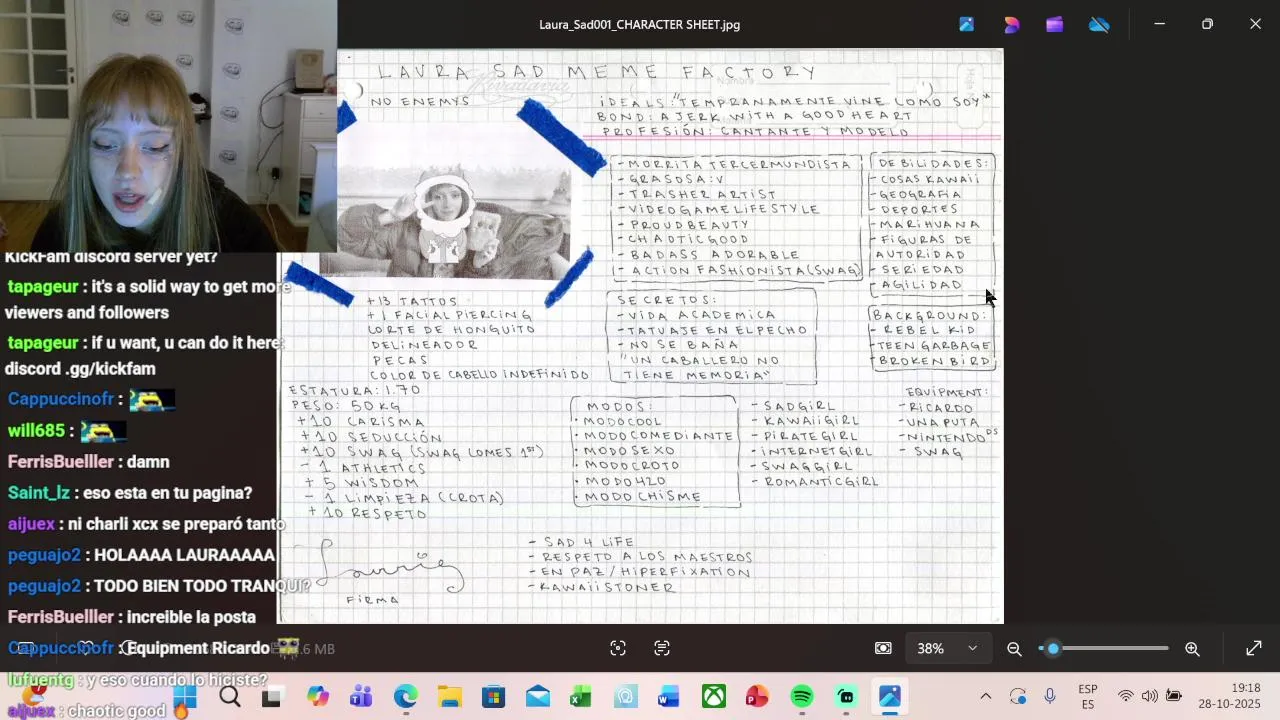 Laura_Sad001_CHARACTER SHEET.jpg
LAURA SAD MEME FACTORY
Rivadavia
Nombre
Hoja
NO ENEMYS
IDEALS: "TEMPRANAMENTE VINE COMO SOY"
BOND: A JERK WITH A GOOD HEART
PROFESIÓN: CANTANTE Y MODELO
- MORRITA TERCERMUNDISTA
- GRASOSA:V
- TRASHER ARTIST
- VIDEOGAME LIFESTYLE
- PROUD BEAUTY
- CHAOTIC GOOD
- BADASS ADORABLE
- ACTION FASHIONISTA (SWAG)
DEBILIDADES:
- COSAS KAWAII
- GEOGRAFIA
- DEPORTES
- MARIHUANA
- FIGURAS DE
AUTORIDAD
- SERIEDAD
- AGILIDAD
+13 TATTOS
+1 FACIAL PIERCING
CORTE DE HONGUITO
DELINEADOR
PECAS
COLOR DE CABELLO INDEFINIDO
SECRETOS:
- VIDA ACADEMICA
- TATUAJE EN EL PECHO
- NO SE BAÑA
"UN CABALLERO NO
TIENE MEMORIA"
BACKGROUND:
- REBEL KID
- TEEN GARBAGE
- BROKEN BIRD
ESTATURA: 1.70
PESO: 50 KG
+10 CARISMA
+10 SEDUCCIÓN
+10 SWAG (SWAG COMES 1ST)
- 1 ATHLETICS
+ 5 WISDOM
- 1 LIMPIEZA (CROTA)
+10 RESPETO
MODOS:
· MODO COOL
· MODO COMEDIANTE
· MODO SEXO
· MODO CROTO
· MODO 420
· MODO CHISME
- SADGIRL
- KAWAIIGIRL
- PIRATEGIRL
- INTERNETGIRL
- SWAGGIRL
- ROMANTICGIRL
EQUIPMENT:
- RICARDO
- UNA PUTA
- NINTENDO DS
- SWAG
- SAD 4 LIFE
- RESPETO A LOS MAESTROS
- EN PAZ / HIPERFIXATION
- KAWAII STONER
FIRMA
KickFam discord server yet?
tapageur : it's a solid way to get more
viewers and followers
tapageur : if u want, u can do it here:
discord .gg/kickfam
Cappuccinofr :
will685 :
FerrisBuelller : damn
Saint_lz : eso esta en tu pagina?
aijuex : ni charli xcx se preparó tanto
peguajo2 : HOLAAAA LAURAAAAA
peguajo2 : TODO BIEN TODO TRANQUI?
FerrisBuelller : increible la posta
Cappuccinofr : Equipment Ricardo
lufuentg : y eso cuando lo hiciste?
aijuex : chaotic good
MB
38%
ESP
ES
19:18
28-10-2025